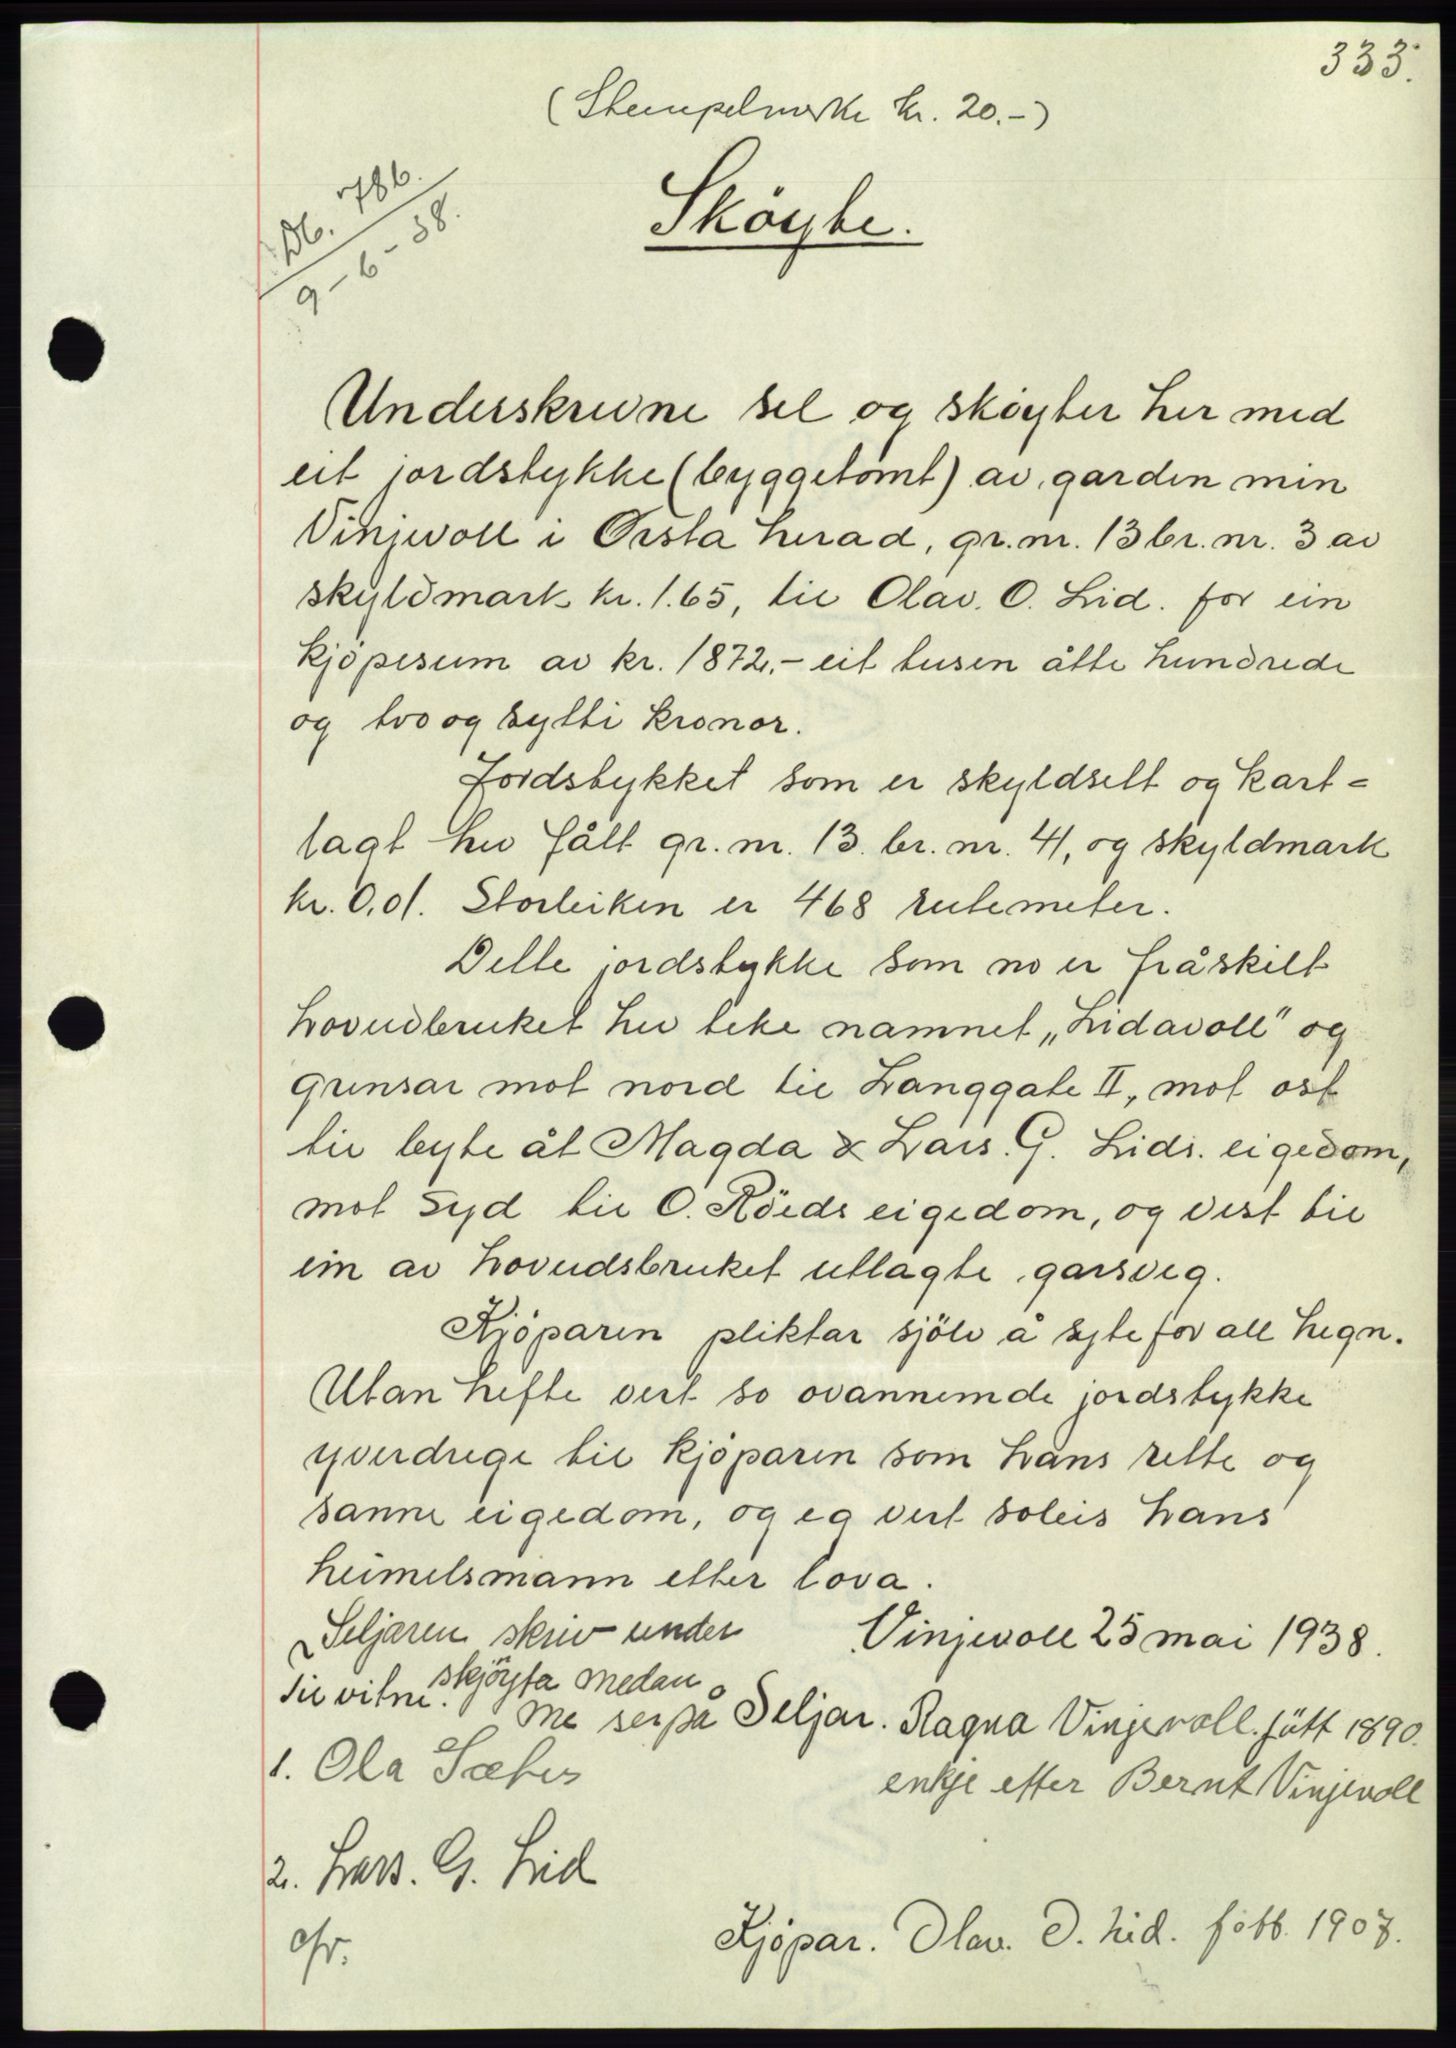 333.
(Stempelmerke kr. 20.-)
Db. 786.
9-6-38.
Sköyte.
Underskrivne sel og sköyter her med
eit jordstykke (byggetomt) av garden min
Vinjevoll i Ørsta herad, gr.nr. 13 br.nr. 3 av
skyldmark kr. 1.65, til Olav. O. Lid. for ein
kjöpesum av kr. 1872,- eit tusen åtte hundrede
og tvo og sytti kronor.
Jordstykket som er skyldsett og kart=
lagt hev fått gr.nr. 13. br.nr. 41, og skyldmark
kr. 0,01. Storleiken er 468 rutemeter.
Dette jordstykke som no er fråskilt
hovudbruket hev teke namnet „Lidavoll" og
grensar mot nord til Langgate II, mot ost
til byte åt Magda & Lars. G. Lids. eigedom,
mot Syd til O. Röeds eigedom, og vest til
ein av hovudsbruket utlagte garsveg.
Kjöparen pliktar sjölv å syte for all hegn.
Utan hefte vert so ovannemde jordstykke
yverdrege til kjöparen som hans rette og
sanne eigedom, og eg vert soleis hans
heimelsmann etter lova.
Seljaren skriv under Vinjevoll 25 mai 1938.
skjöyta medan
Til vitne. me ser på Seljar. Ragna Vinjevoll. fött 1890.
1. Ola Sæter enkje etter Bernt Vinjevoll
2. Lars. G. Lid
Kjöpar. Olav. O. Lid. född. 1907.